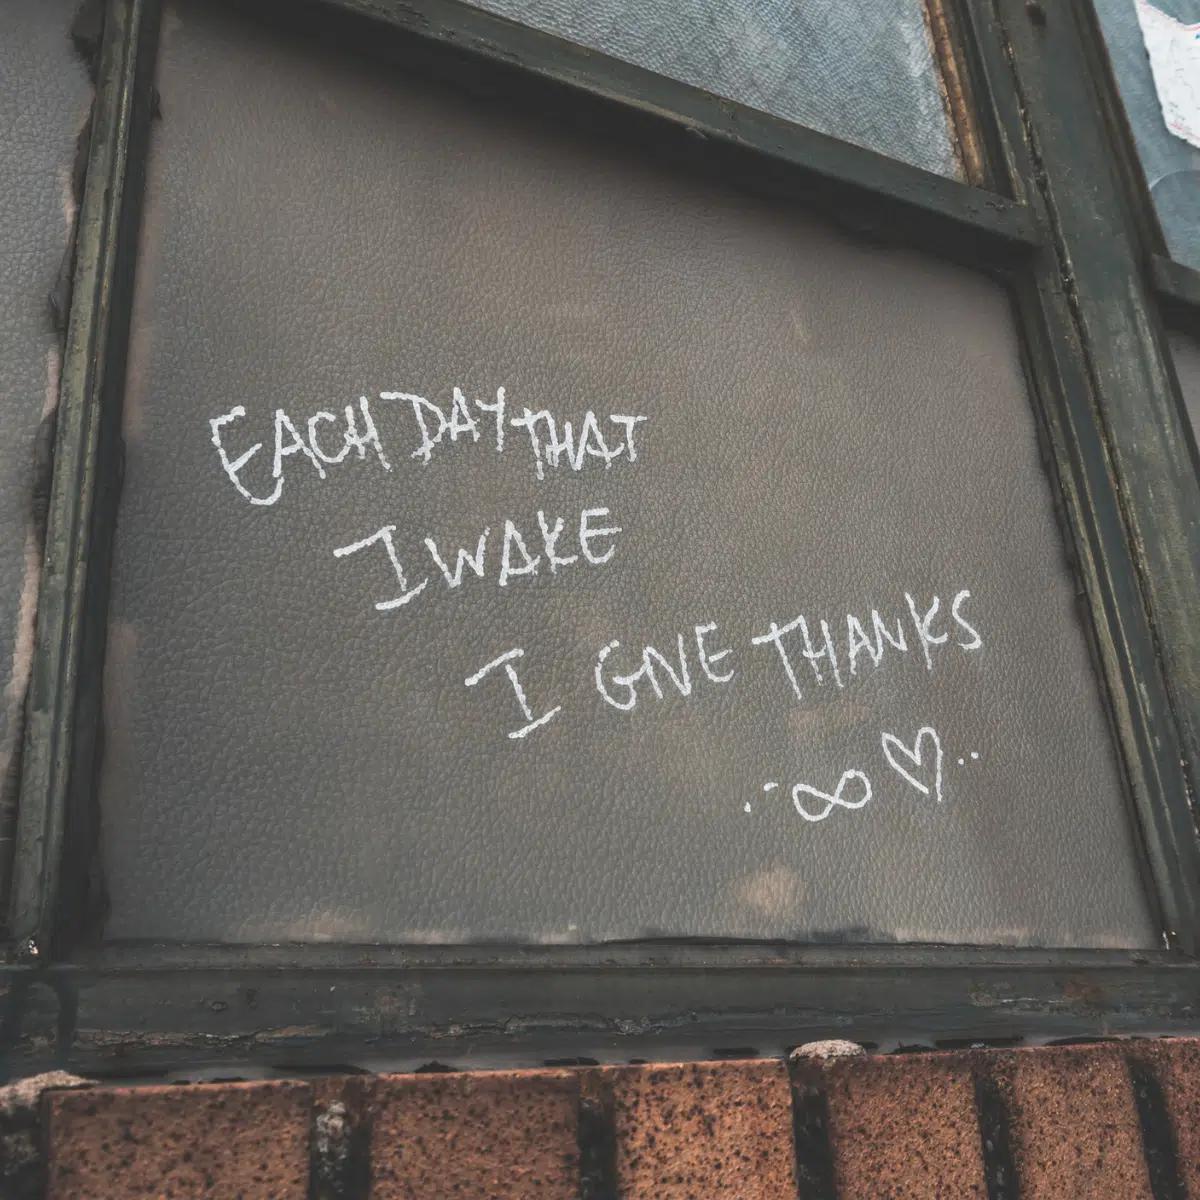 EACH DAY THAT
I WAKE
I GIVE THANKS
∞♡..